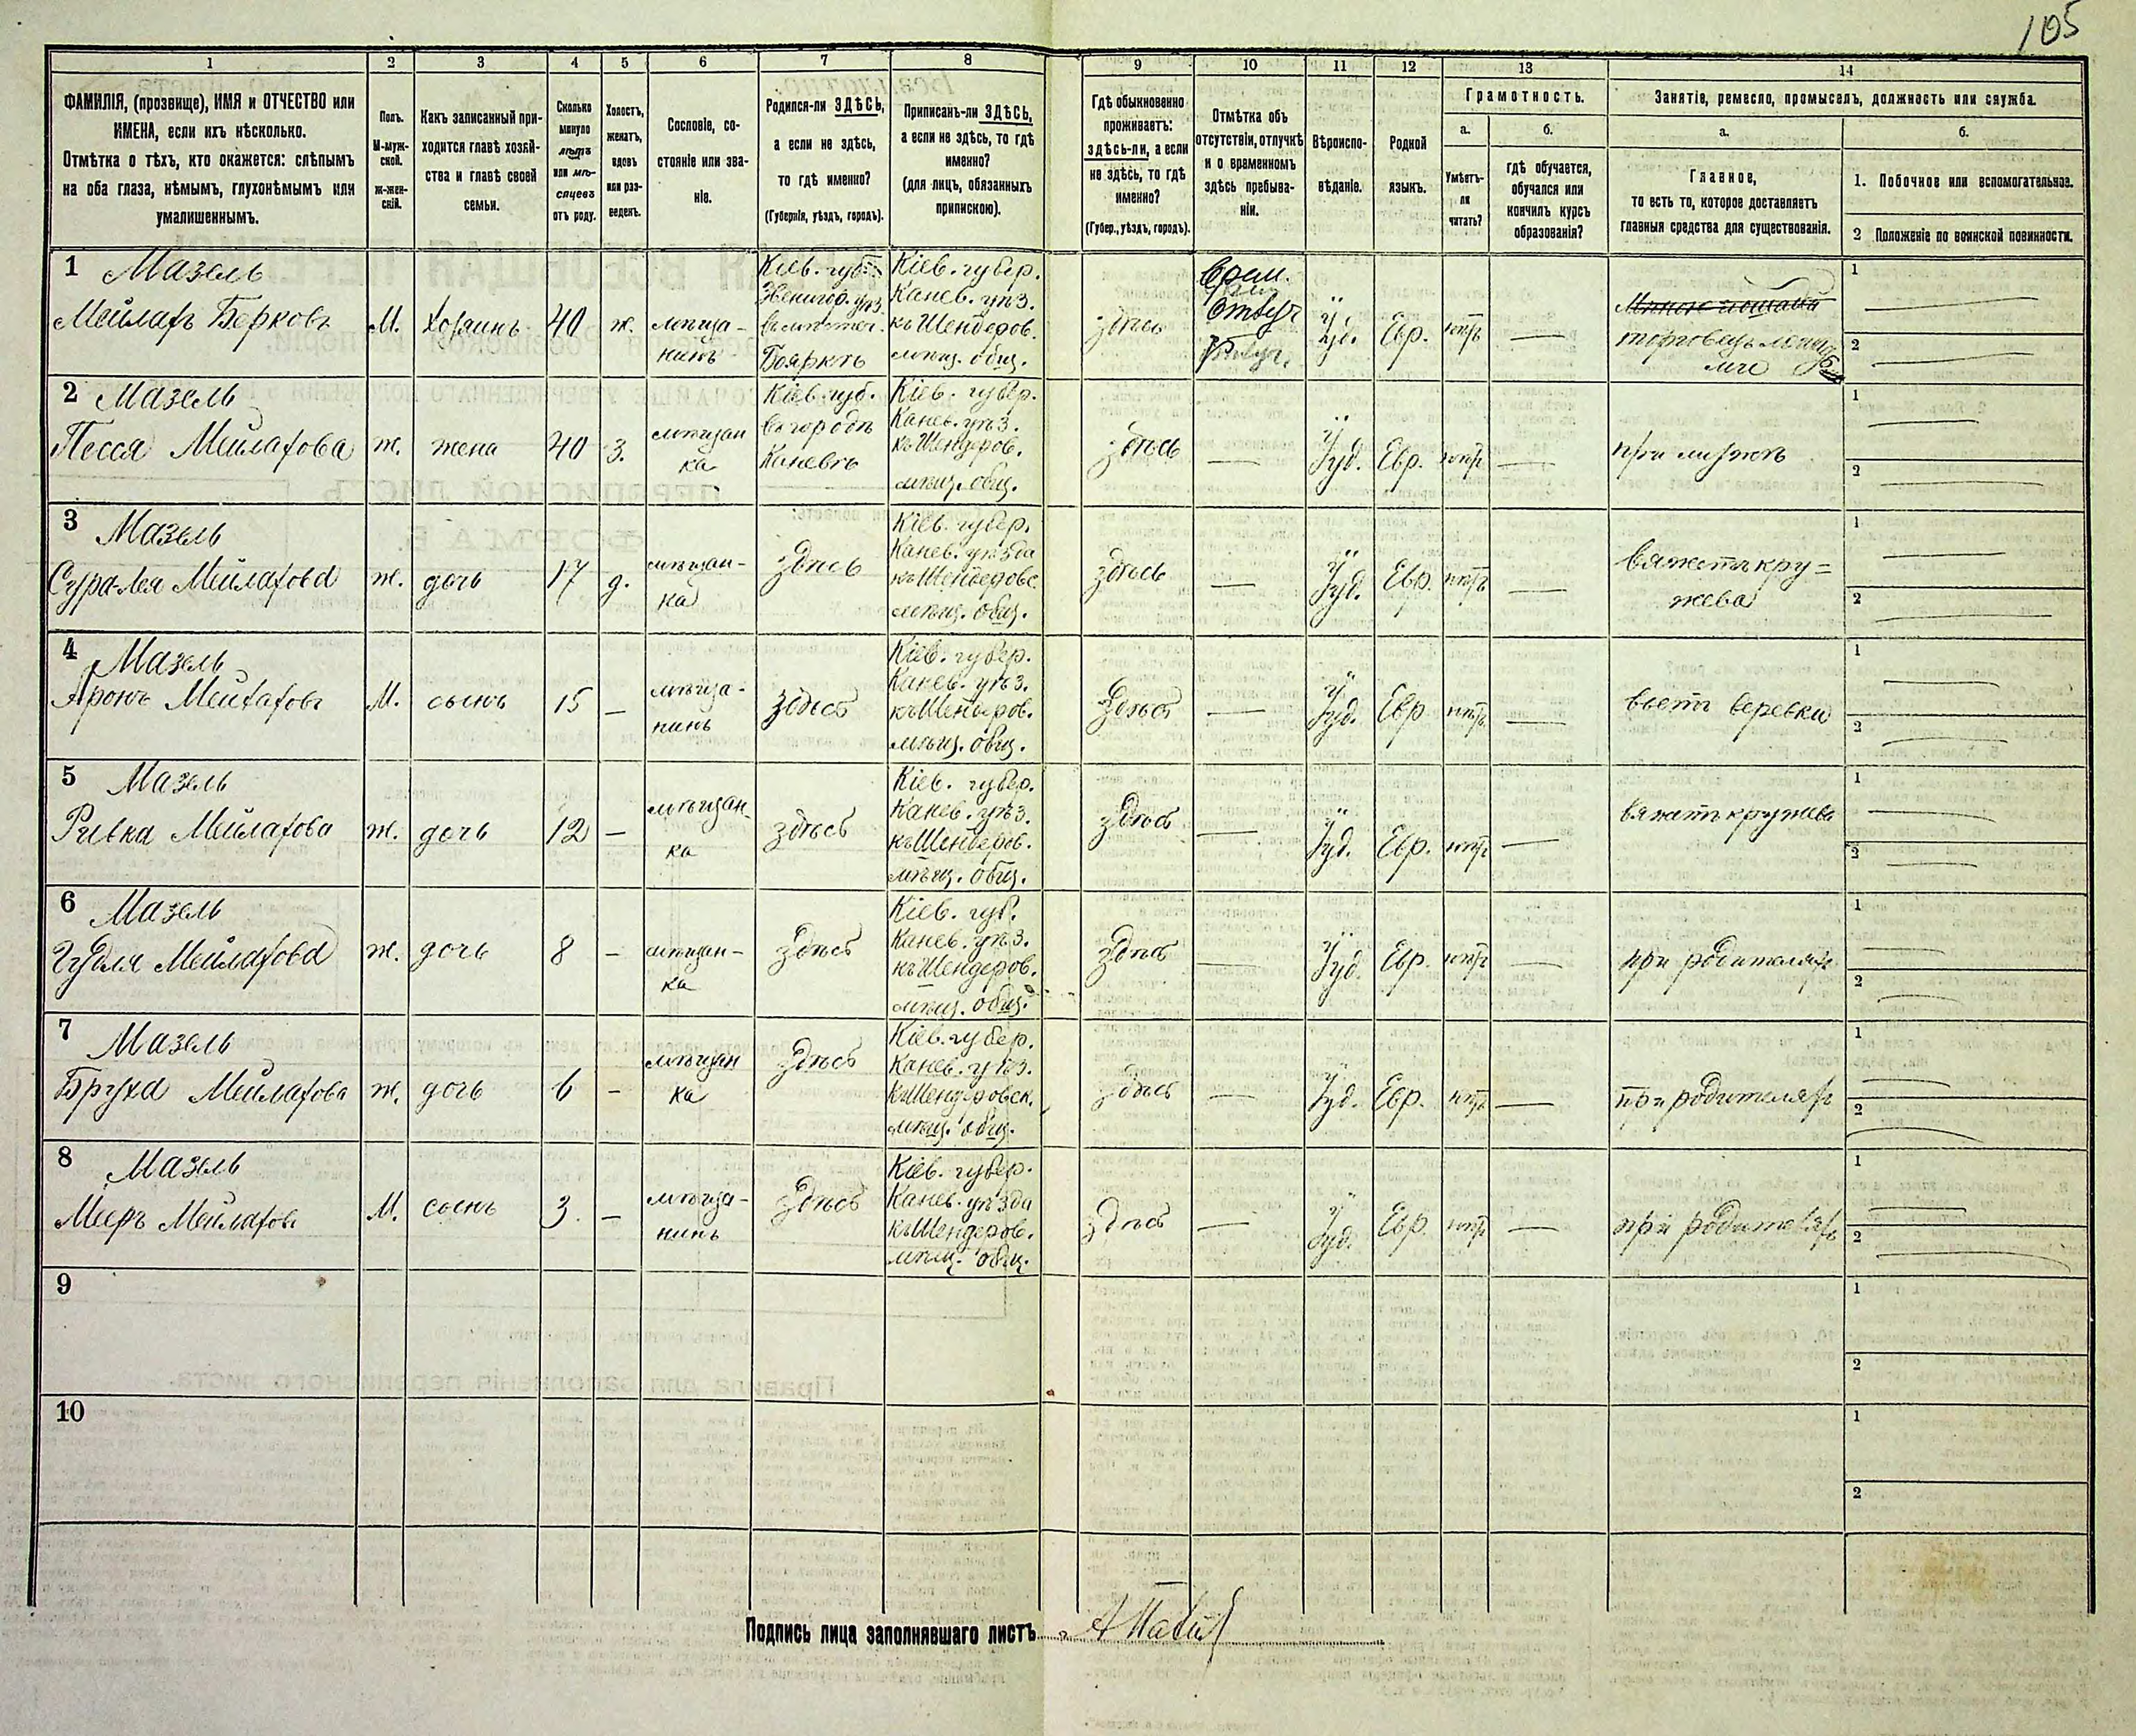 105
1
2
3
4
5
6
7
8
9
10
11
12
13
14
ФАМИЛІЯ, (прозвище), ИМЯ и ОТЧЕСТВО или
ИМЕНА, если ихъ нѣсколько.
Отмѣтка о тѣхъ, кто окажется: слѣпымъ
на оба глаза, нѣмымъ, глухонѣмымъ или
умалишеннымъ.
Полъ.
М-муж-
ской.
Ж-жен-
скій.
Какъ записанный при-
ходится главѣ хозяй-
ства и главѣ своей
семьи.
Сколько
минуло
лѣтъ
или мѣ-
сяцевъ
отъ роду.
Холостъ,
женатъ,
вдовъ
или раз-
веденъ.
Сословіе, со-
стояніе или зва-
ніе.
Родился-ли ЗДѢСЬ,
а если не здѣсь,
то гдѣ именно?
(Губернія, уѣздъ, городъ).
Приписанъ-ли ЗДѢСЬ,
а если не здѣсь, то гдѣ
именно?
(для лицъ, обязанныхъ
припискою).
Гдѣ обыкновенно
проживаетъ:
здѣсь-ли, а если
не здѣсь, то гдѣ
именно?
(Губер., уѣздъ, городъ).
Отмѣтка объ
отсутствіи, отлучкѣ
и о временномъ
здѣсь пребыва-
ніи.
Вѣроиспо-
вѣданіе.
Родной
языкъ.
Грамотность.
а.
Умѣетъ-
ли
читать?
б.
гдѣ обучается,
обучался или
кончилъ курсъ
образованія?
Занятіе, ремесло, промыселъ, должность или служба.
а.
Главное,
то есть то, которое доставляетъ
главныя средства для существованія.
б.
1. Побочное или вспомогательное.
2 Положеніе по воинской повинности.
1 Мазель
Мейлахъ Берковъ
М.
Хозяинъ
40
ж.
мѣща-
нинъ
Кіев. губ.
Звенигор. уѣз.
Бояркѣ
Кіев. губер.
Канев. уѣз.
къ Шендеров.
мѣщ. общ.
здѣсь
Врем.
Отлуч
Іуд.
Евр.
нѣтъ
—
торговецъ
1
2
2 Мазель
Песся Мейлахова
ж.
жена
40
з.
мѣщан
ка
Кіев. губ.
въ городѣ
Каневѣ
Кіев. губер.
Канев. уѣз.
къ Шендеров.
мѣщ. общ.
здѣсь
—
Іуд.
Евр.
нѣтъ
—
при мужѣ
1
2
3 Мазель
Сура-Лея Мейлахова
ж.
дочь
17
д.
мѣщан-
ка
здѣсь
Кіев. губер.
Канев. уѣзда
къ Шендеровс.
мѣщ. общ.
здѣсь
—
Іуд.
Евр.
нѣтъ
—
вяжетъ кру=
жева
1
2
4 Мазель
Аронъ Мейлаховъ
М.
сынъ
15
—
мѣща-
нинъ
здѣсь
Кіев. губер.
Канев. уѣз.
къ Шендеров.
мѣщ. общ.
здѣсь
—
Іуд.
Евр
нѣтъ
—
вьетъ веревки
1
2
5 Мазель
Ривка Мейлахова
ж.
дочь
12
—
мѣщан-
ка
здѣсь
Кіев. губер.
Канев. уѣз.
къ Шендеров.
мѣщ. общ.
здѣсь
—
Іуд.
Евр.
нѣтъ
—
вяжетъ кружева
1
2
6 Мазель
Мейлахова
ж.
дочь
8
—
мѣщан-
ка
здѣсь
Кіев. губ.
Канев. уѣз.
къ Шендеров.
мѣщ. общ.
здѣсь
—
Іуд.
Евр.
нѣтъ
—
при родителяхъ
1
2
7 Мазель
Бруха Мейлахова
ж.
дочь
6
—
мѣщан
ка
здѣсь
Кіев. губер.
Канев. уѣз.
къ Шендеровск.
мѣщ. общ.
здѣсь
—
Іуд.
Евр.
нѣтъ
—
при родителяхъ
1
2
8 Мазель
Мееръ Мейлахов.
М.
сынъ
3.
—
мѣща-
нинъ
здѣсь
Кіев. губер.
Канев. уѣзда
къ Шендеров.
мѣщ. общ.
здѣсь
—
Іуд.
Евр.
нѣтъ
—
при родителяхъ
1
2
9
1
2
10
1
2
Подпись лица заполнявшаго листъ